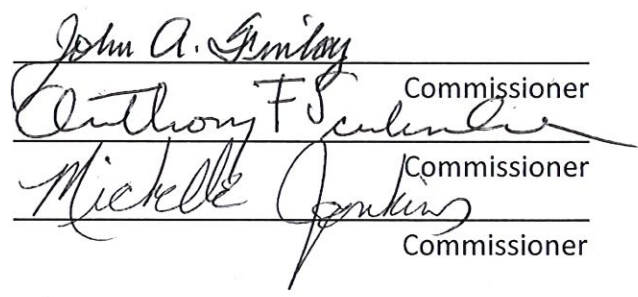 John A. Finlay
Commissioner
Anthony F
Commissioner
Michelle Jenkins
Commissioner